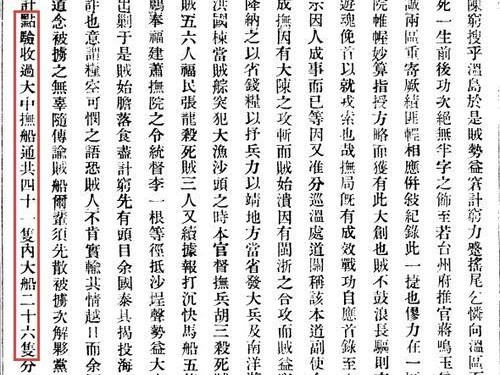 陳窮搜乎溫島於是賊勢益窘計窮力蹙搖尾乞憐向溫區
死一生前後功次絕無半字之飾至若台州府推官蔣鳴玉
誠兩區重寄厥績匪輕相應併敘紀錄此一捷也僇力在一
院帷幄妙算指授方略而獲有此大創也賊不鼓浪長驅則
遊魂俛首以就戎索也哉撫局旣有成效戰功自應首錄至
示因人成事而已等因又准分巡溫處道關稱該本道副使
成撫因有大陳之攻斬而賊始潰因有閩浙之合攻而賊
降納之以省錢糧以抒兵力以靖地方當省發大兵及南洋
洪國棟當賊艅突犯大漁沙頭之時本官督撫兵胡三殺死
賊五六人福民張龍殺死賊三人又續據報打沉快馬船五
奉福建蕭撫院之令統督李一根等徑抵沙埕聲勢益大
出剿于是賊始膽落食盡計窮先有頭目余國泰具揭投海
計也意謂糧客可憫之語恐賊人不肯實輸其情越日而余
道念被擄之無辜隨傳諭賊船爾輩須先散被擄次解夥黨
計點驗收過大中撫船通共四十一隻內大船二十六隻分